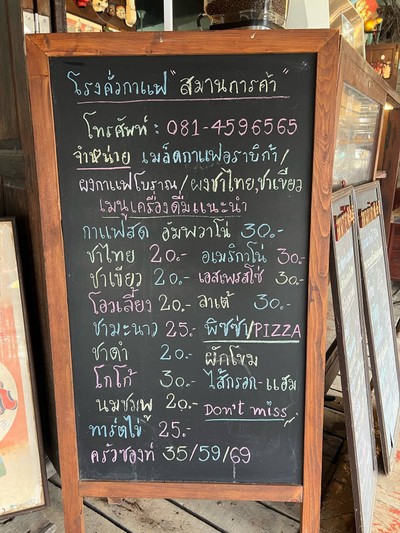 โรงคั่วกาแฟ "สมานการค้า"
โทรศัพท์ : 081-4596565
จำหน่าย เมล็ดกาแฟอราบิก้า/
ผงกาแฟโบราณ/ผงชาไทย,ชาเขียว
เมนูเครื่องดื่มแนะนำ
กาแฟสด อัมพวาโน่ 30.-
ชาไทย 20.- อเมริกาโน่ 30.-
ชาเขียว 20.- เอสเพรสโซ่ 30.-
โอวเลี้ยง 20.- ลาเต้ 30.-
ชามะนาว 25.- พิซซ่า/PIZZA
ชาดำ 20.- ผักโขม
โกโก้ 30.- ไส้กรอก-แฮม
นมชมพู 20.- Don't miss
ทาร์ตไข่ 25.-
ครัวซองท์ 35/59/69